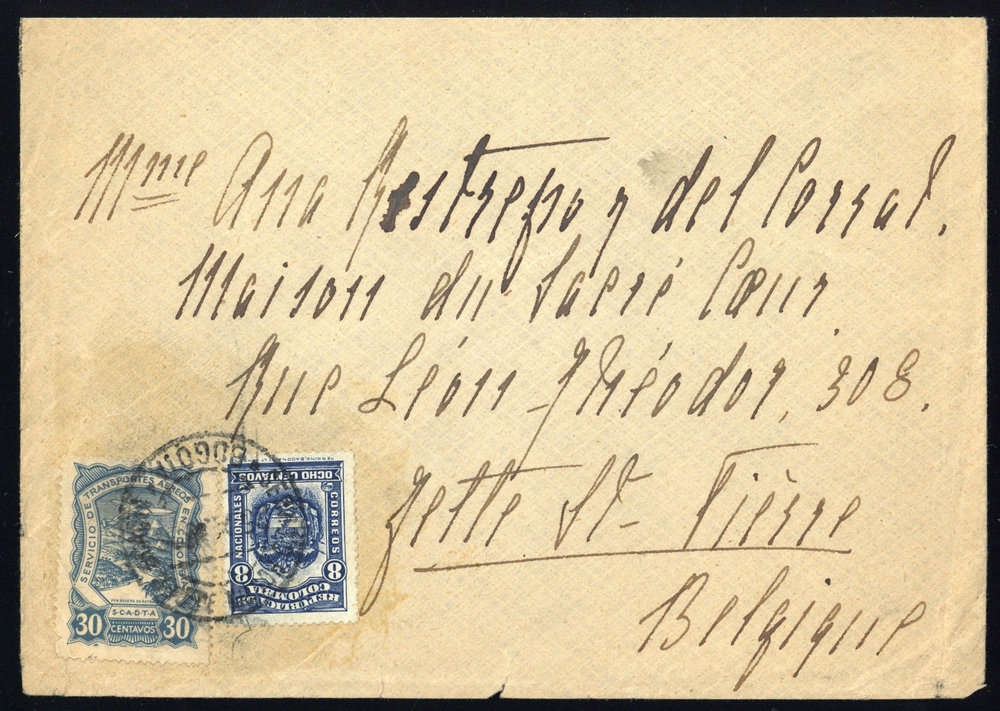 Mme Ana Restrepo y del Corral.
Maison du Sacré Cœur
Rue Léon-Théodor, 308.
Jette St- Pierre
Belgique
BOGOTÁ
SERVICIO DE TRANSPORTES AEREOS EN
S·C·A·D·T·A
30 CENTAVOS 30
CORREOS NACIONALES
OCHO CENTAVOS
8 8
REPUBLICA
COLOMBIA